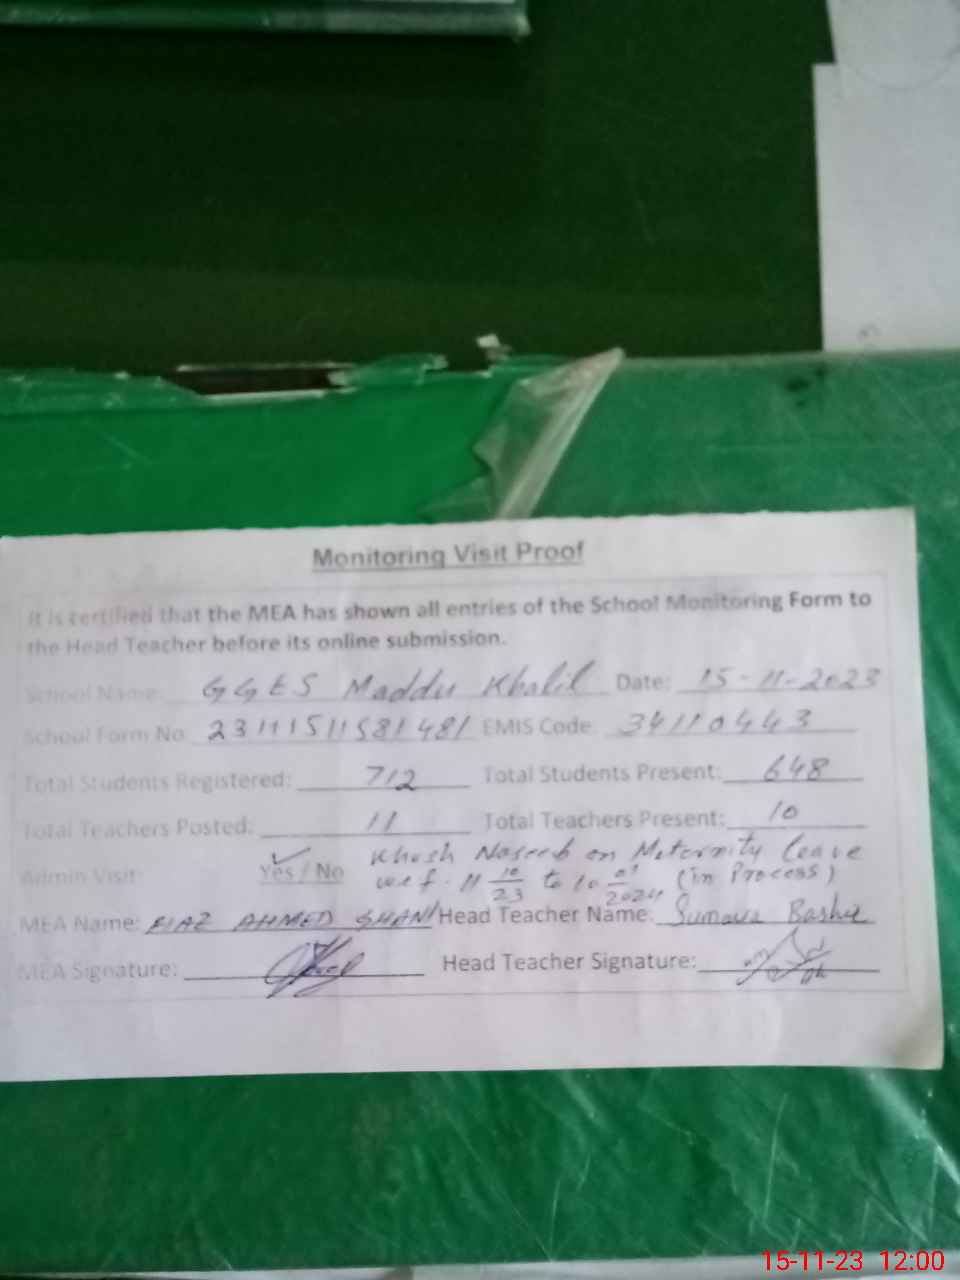 Monitoring Visit Proof
It is certified that the MEA has shown all entries of the School Monitoring Form to
the Head Teacher before its online submission.
School Name: GGES Maddu Khalil Date: 15-11-2023
School Form No 23111511581481 EMIS Code. 34110443
Total Students Registered: 712 Total Students Present: 648
Total Teachers Posted: 11 Total Teachers Present: 10
Khush Naseeb on Maternity leave
Admin Visit: Yes / No w.e.f. 11 10/23 to 10 01/2024 (in Process)
MEA Name: RIAZ AHMED Head Teacher Name: Bashir
MEA Signature: Head Teacher Signature:
15-11-23 12:00